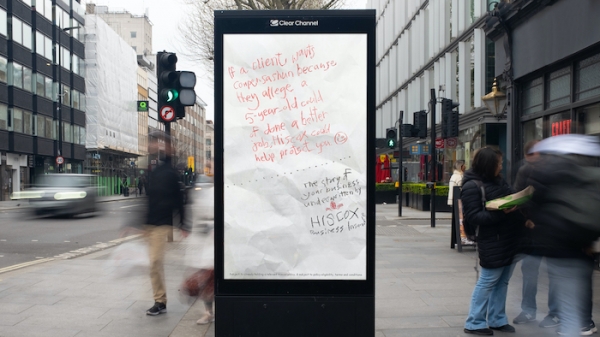 Clear Channel
If a client wants
compensation because
they allege a
5-year-old could
of done a better
job, Hiscox could
help protect you
The story of
your business
underwritten by
HISCOX
business